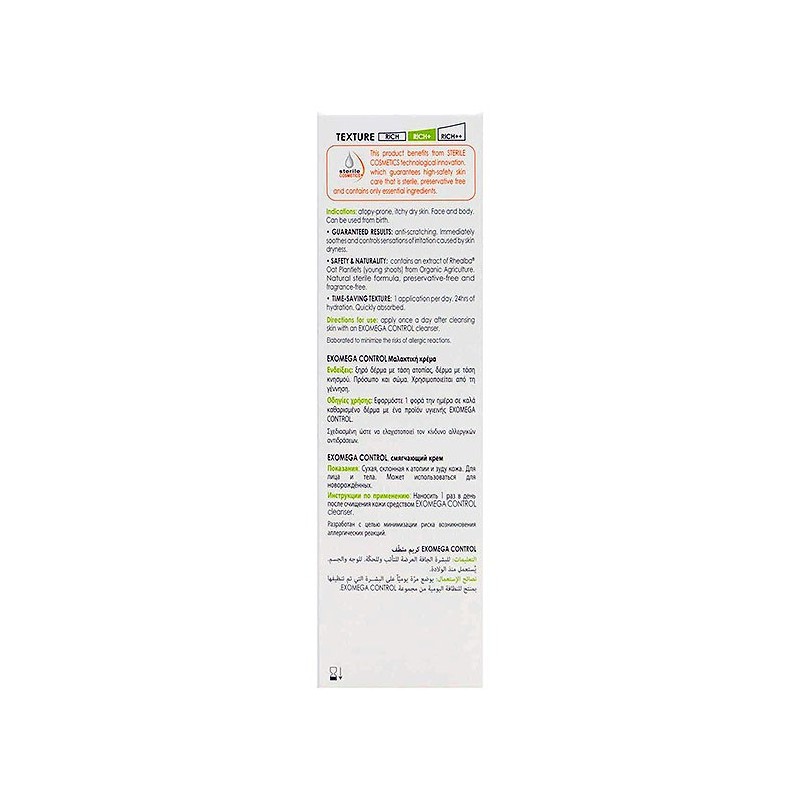 TEXTURE RICH RICH+ RICH++
sterile
COSMETICS
This product benefits from STERILE
COSMETICS technological innovation,
which guarantees high-safety skin
care that is sterile, preservative free
and contains only essential ingredients.
Indications: atopy-prone, itchy dry skin. Face and body.
Can be used from birth.
• GUARANTEED RESULTS: anti-scratching. Immediately
soothes and controls sensations of irritation caused by skin
dryness.
• SAFETY & NATURALITY: contains an extract of Rhealba®
Oat Plantlets (young shoots) from Organic Agriculture.
Natural sterile formula, preservative-free and
fragrance-free.
• TIME-SAVING TEXTURE: 1 application per day. 24hrs of
hydration. Quickly absorbed.
Directions for use: apply once a day after cleansing
skin with an EXOMEGA CONTROL cleanser.
Elaborated to minimize the risks of allergic reactions.
EXOMEGA CONTROL Μαλακτική κρέμα
Ενδείξεις: ξηρό δέρμα με τάση ατοπίας, δέρμα με τάση
κνησμού. Πρόσωπο και σώμα. Χρησιμοποιείται από τη
γέννηση.
Οδηγίες χρήσης: Εφαρμόστε 1 φορά την ημέρα σε καλά
καθαρισμένο δέρμα με ένα προϊόν υγιεινής EXOMEGA
CONTROL.
Σχεδιασμένη ώστε να ελαχιστοποιεί τον κίνδυνο αλλεργικών
αντιδράσεων.
EXOMEGA CONTROL смягчающий крем
Показания: Сухая, склонная к атопии и зуду кожа. Для
лица и тела. Может использоваться для
новорождённых.
Инструкции по применению: Наносить 1 раз в день
после очищения кожи средством EXOMEGA CONTROL
cleanser.
Разработан с целью минимизации риска возникновения
аллергических реакций.
EXOMEGA CONTROL كريم ملطّف
التعليمات: للبشرة الجافة العرضة للتأتب وللحكّة. للوجه والجسم.
يُستعمل منذ الولادة.
نصائح الإستعمال: يوضع مرّة يومياً على البشرة التي تم تنظيفها
بمنتج للنظافة اليومية من مجموعة EXOMEGA CONTROL.